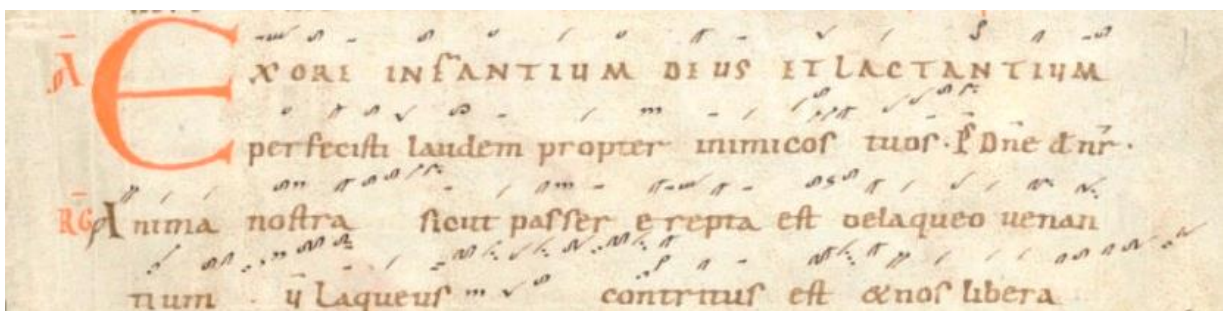 Ā EXORE INFANTIUM DEUS ET LACTANTIUM
perfecisti laudem propter inimicos tuos. P̄s Dn̄e d̄ nr̄.
R̄G Anima nostra sicut passer erepta est de laqueo uenan
tium ỹ Laqueus contritus est & nos libera